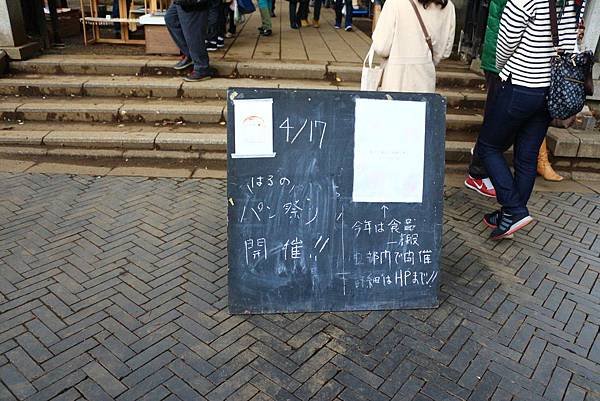 4/17
はるの
パン祭り
開催!!
↑
今年は食品
一般
都内で開催
詳細はHPまで!!